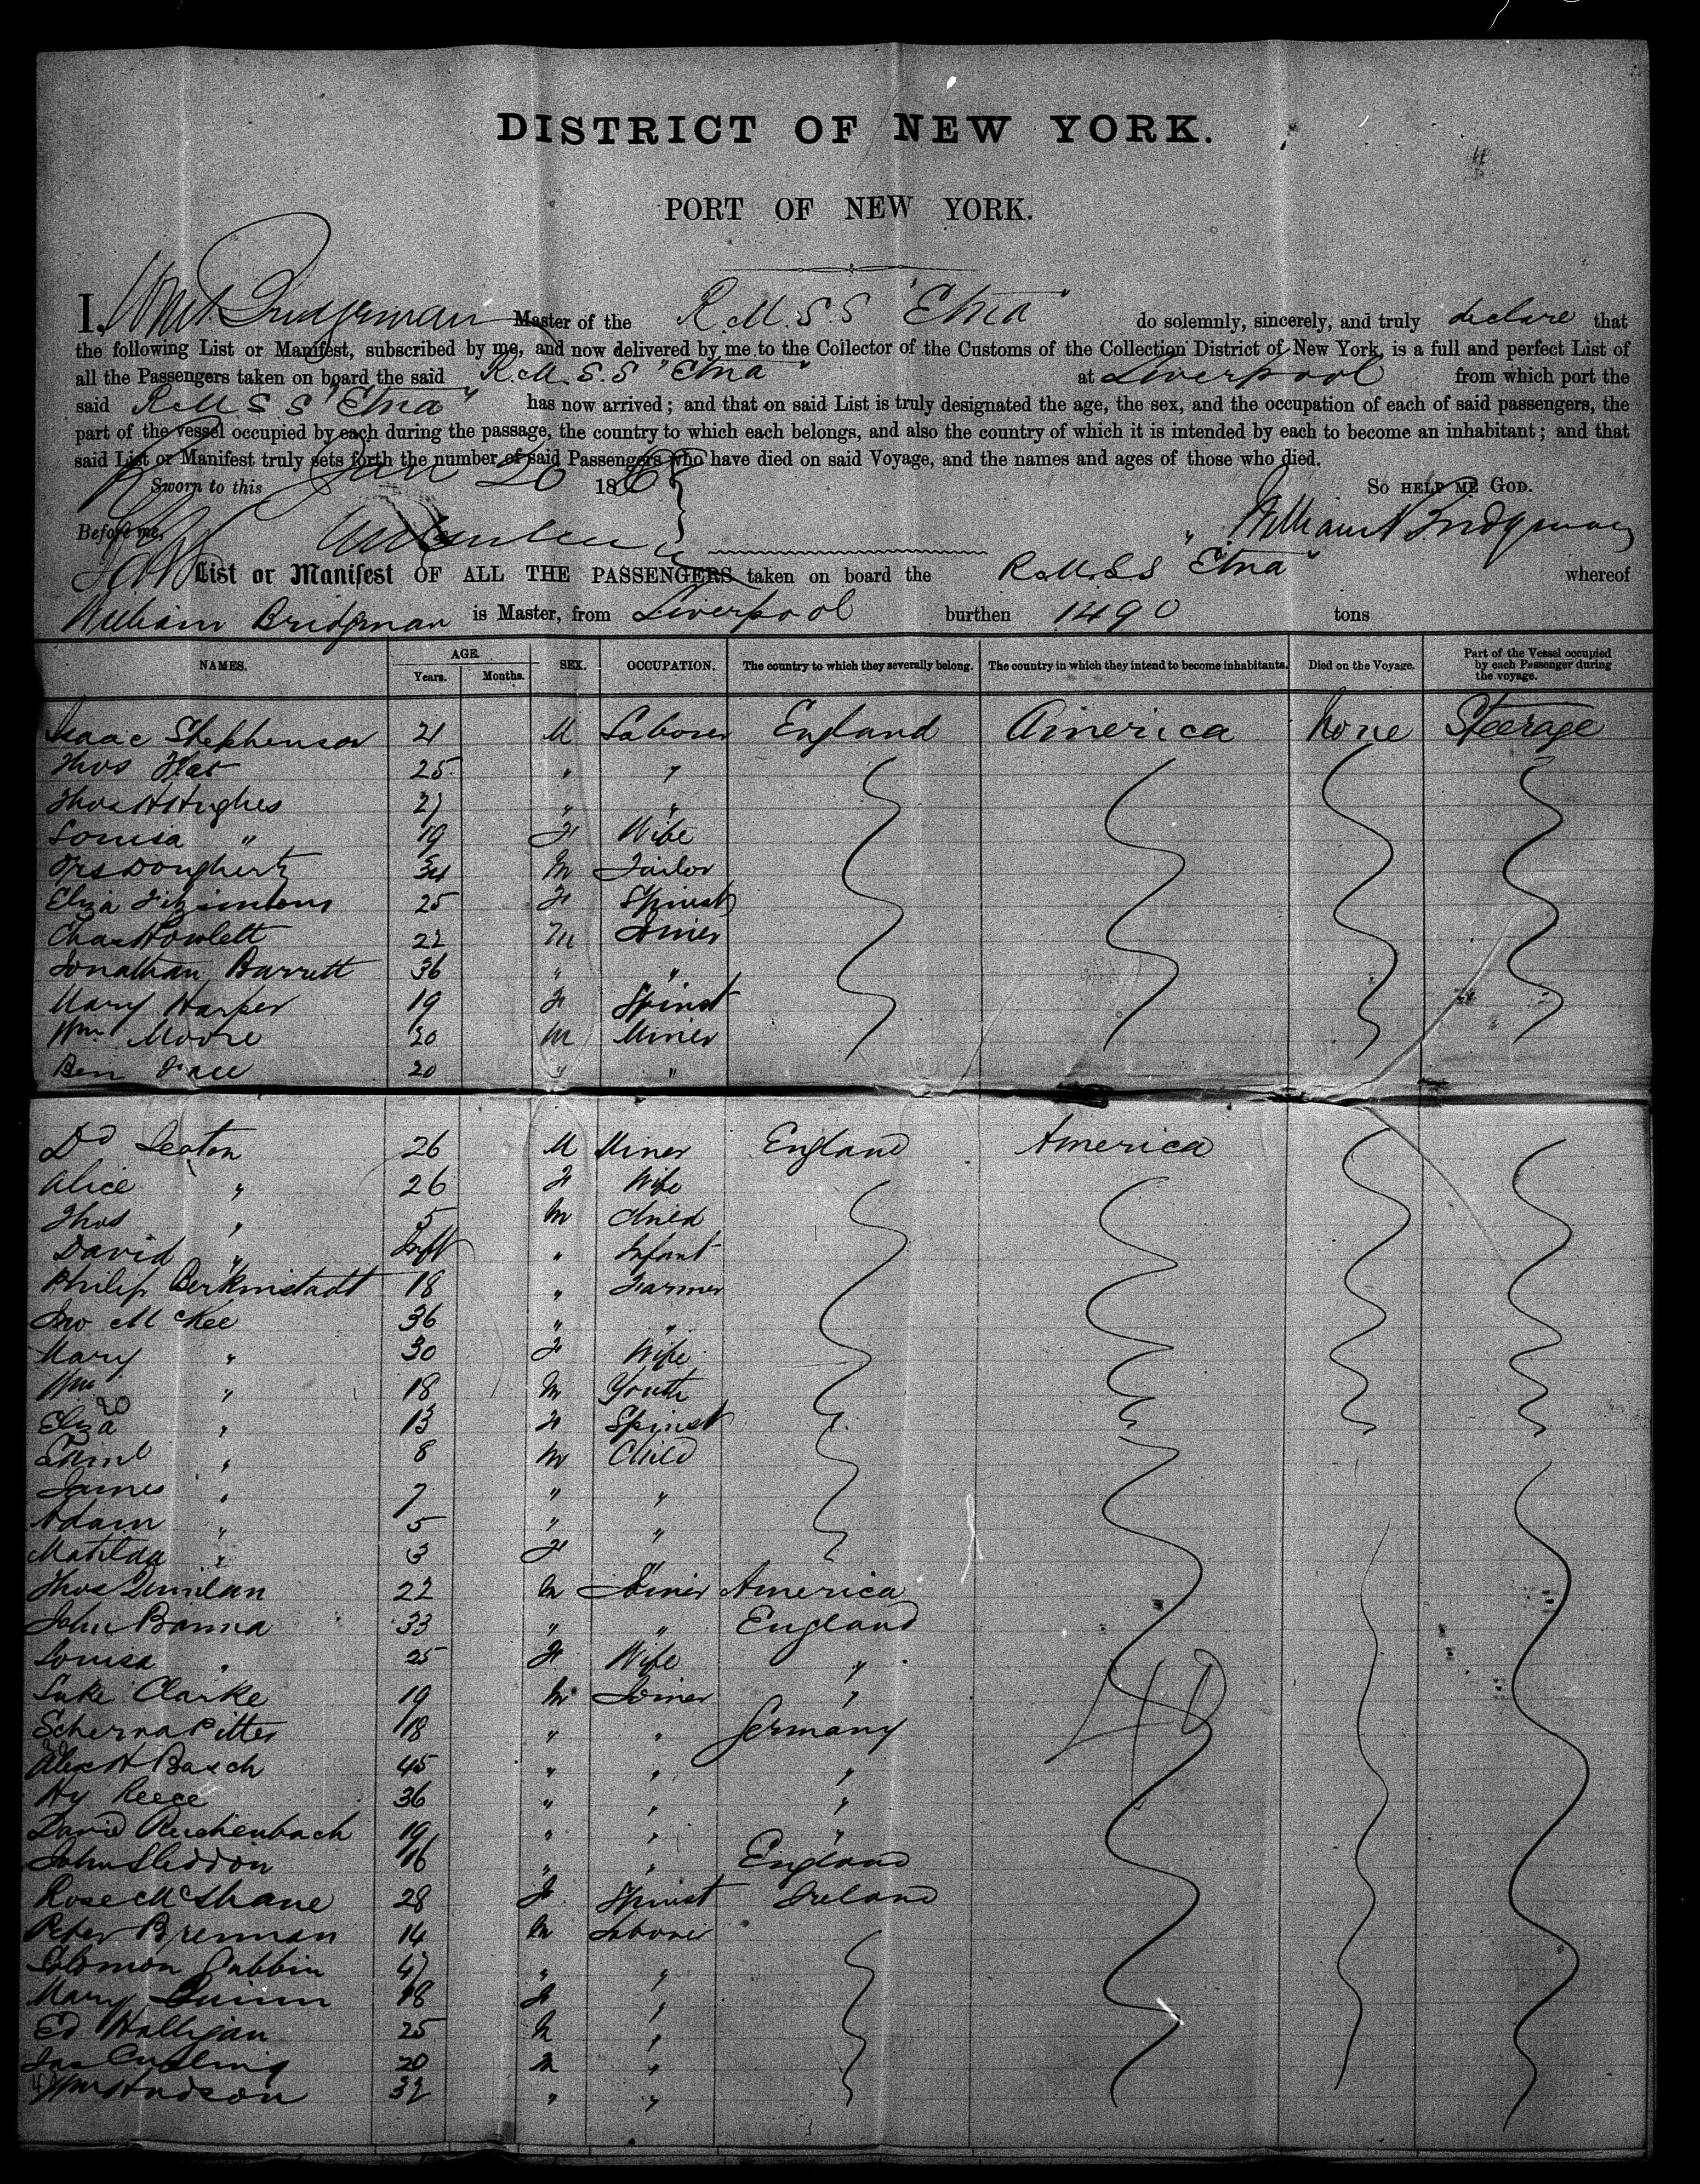 DISTRICT OF NEW YORK.
PORT OF NEW YORK.
I, Master of the R.M.S.S "Etna" do solemnly, sincerely, and truly declare that
the following List or Manifest, subscribed by me, and now delivered by me to the Collector of the Customs of the Collection District of New York, is a full and perfect List of
all the Passengers taken on board the said R.M.S.S "Etna" at Liverpool from which port the
said R.M.S.S "Etna" has now arrived; and that on said List is truly designated the age, the sex, and the occupation of each of said passengers, the
part of the vessel occupied by each during the passage, the country to which each belongs, and also the country of which it is intended by each to become an inhabitant; and that
said List or Manifest truly sets forth the number of said Passengers who have died on said Voyage, and the names and ages of those who died.
Sworn to this 20 18 So HELP ME GOD.
Before me, William Bridgman
List or Manifest OF ALL THE PASSENGERS taken on board the R.M.S.S "Etna" whereof
William Bridgman is Master, from Liverpool burthen 1490 tons
NAMES. AGE. Years. Months. SEX. OCCUPATION. The country to which they severally belong. The country in which they intend to become inhabitants. Died on the Voyage. Part of the Vessel occupied by each Passenger during the voyage.
Isaac Stephenson 21 M Laborer England America None Steerage
Thos 25 " "
Thos H Hughes " "
Louisa " 19 F Wife
Dougherty 34 M Tailor
Eliza Fitzsimons 25 F Spinst
Chas Howlett 22 M Joiner
Jonathan Barrett 36 " "
Mary Harper 19 F Spinst
Wm Moore 20 M Miner
Ben 20 " "
Dd Seaton 26 M Miner England America
Alice " 26 F Wife
Thos " 5 M Child
David " Inft " Infant
Philip Berkmstadt 18 " Farmer
Jno McKee 36 " "
Mary " 30 F Wife
Wm " 18 M Youth
20
Eliza " 13 F Spinst
Saml " 8 M Child
James " 7 " "
Adam " 5 " "
Matilda " 3 F
Thos Quinlan 22 M Joiner America
John Banna 33 " " England
Louisa " 25 F Wife "
Luke Clarke 19 M Joiner "
18 " " Germany
Alex H Basch 45 " " "
Hy Reece 36 " " "
David Reichenbach 19 " " "
John Sleddon 16 " " England
Rose McShane 28 F Spinst Ireland
Peter Brennan 14 M Laborer
Solomon Gabbin 47 " "
Mary Quinn 18 F "
Ed Halligan 25 M "
Jas 20 M "
Wm Hudson 32 " "
40